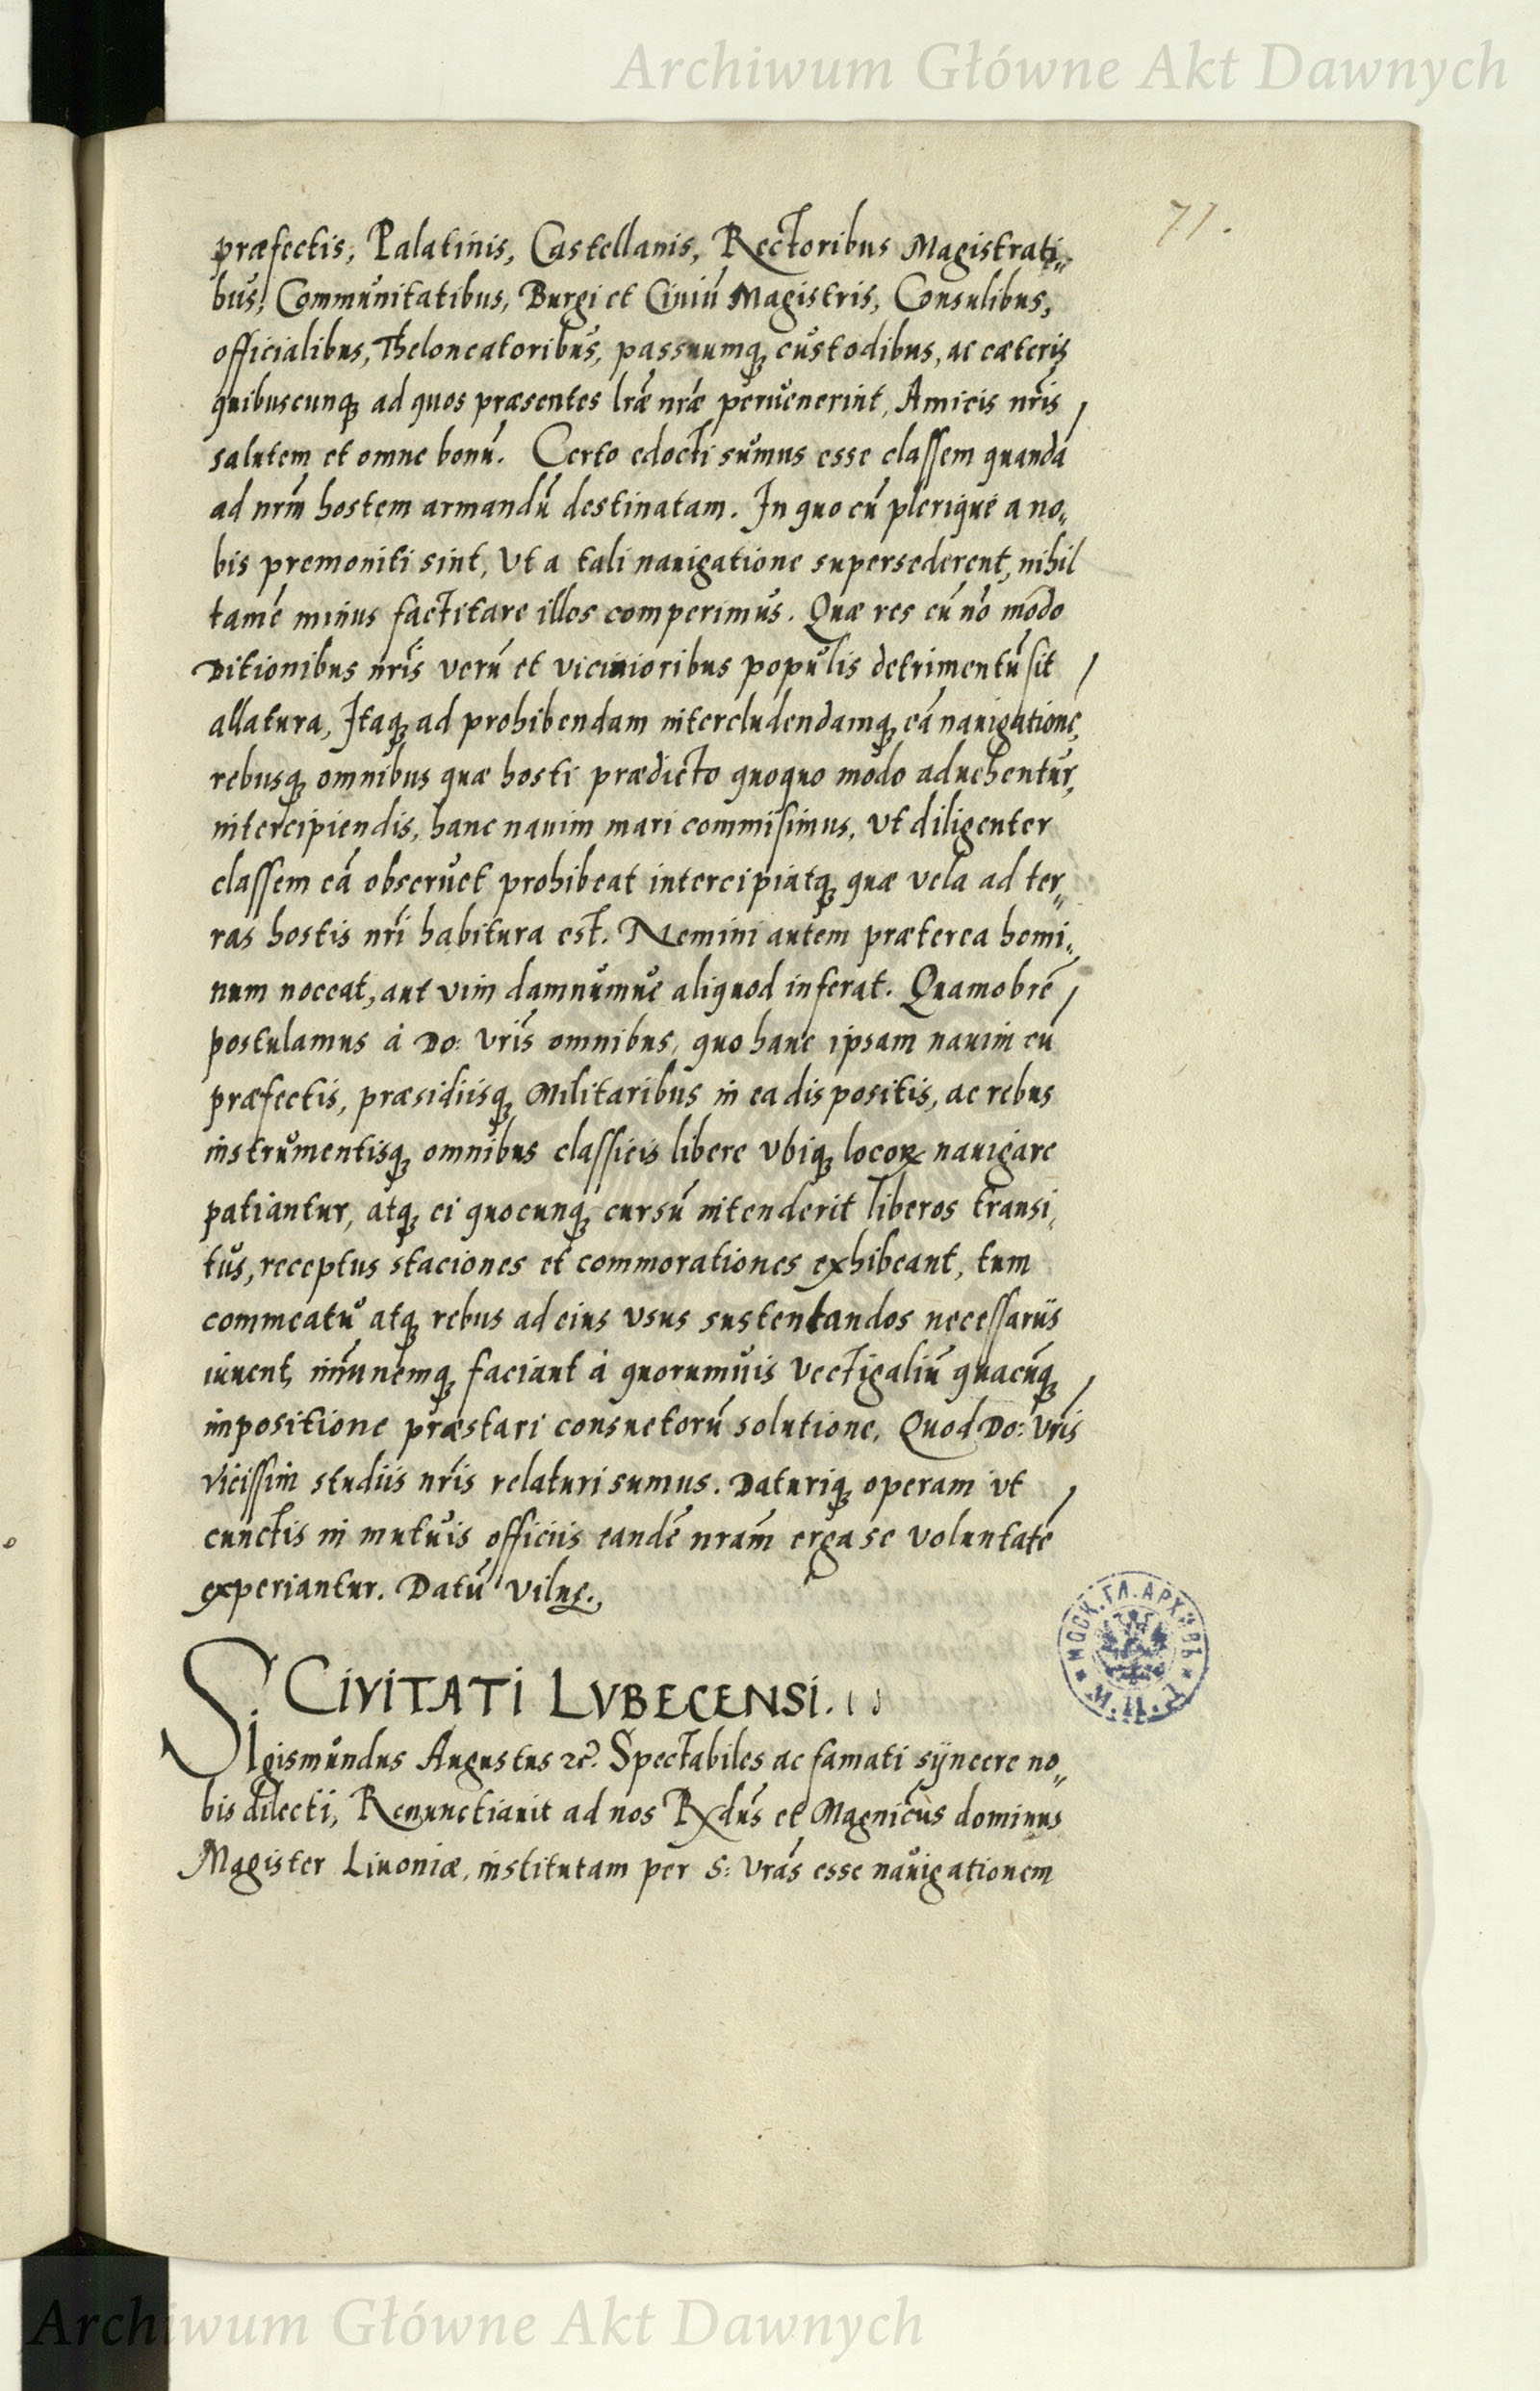 Archiwum Główne Akt Dawnych
71.
præfectis, Palatinis, Castellanis, Rectoribus Magistrati„
bus, Communitatibus, Burgi et Ciuiū Magistris, Consulibus,
officialibus, Theloneatoribus, passuumq; custodibus, ac cæteris
quibuscunq; ad quos præsentes lræ nræ peruenerint, Amicis nris
salutem et omne bonū. Certo edocti sumus esse classem quandā
ad nrm hostem armandū destinatam. In quo cū plerique a no„
bis premoniti sint, Vt a tali nauigatione supersederent, nihil
tamē minus factitare illos comperimus. Quæ res cū nō modo
Ditionibus nris verū et vicinioribus populis detrimentū sit
allatura, Itaq; ad prohibendam intercludendamq; eā nauigationē,
rebusq; omnibus quæ hosti prædicto quoquo modo aduehentur,
intercipiendis, hanc nauim mari commisimus, Vt diligenter
classem eā obseruet prohibeat intercipiatq; quæ vela ad ter„
ras hostis nri habitura est. Nemini autem præterea homi„
num noceat, aut vim damnumue aliquod inferat. Quamobrē
postulamus à Do: Vris omnibus, quo hanc ipsam nauim cū
præfectis, præsidiisq; Militaribus in ea dispositis, ac rebus
instrumentisq; omnibus classicis libere Vbiq; locoꝝ nauigare
patiantur, atq; ei quocunq; cursū intenderit liberos transi„
tus, receptus staciones et commorationes exhibeant, tum
commeatu atq; rebus ad eius vsus sustentandos necessariis
iuuent, imunemq; faciant à quorumuis Vectigaliū quacūq;
impositione præstari consuetorū solutione. Quod Do: Vris
vicissim studiis nris relaturi sumus. Daturiq; operam vt
cunctis in mutuis officiis eandē nram erga se voluntatē
experiantur. Datū Vilnę.
CIVITATI LVBECENSI.
Sigismundus Augustus ꝛc. Spectabiles ac famati syncere no„
bis dilecti, Renunctiauit ad nos Rxdus et Magnicus dominus
Magister Liuoniæ, institutam per S: Vras esse nauigationem
МОСК. ГЛ. АРХИВЪ
М. И. Д.
Archiwum Główne Akt Dawnych